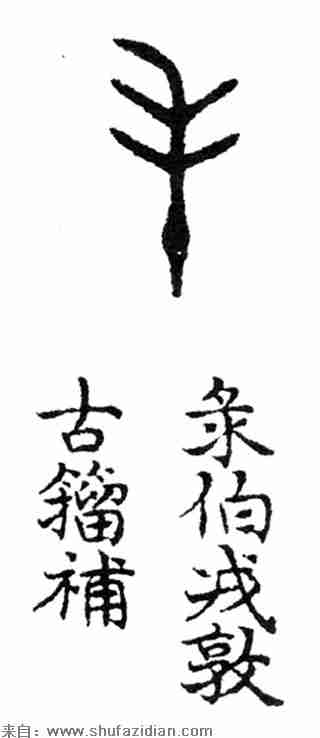 手
彔伯戎敦
古籀補
来自：www.shufazidian.com